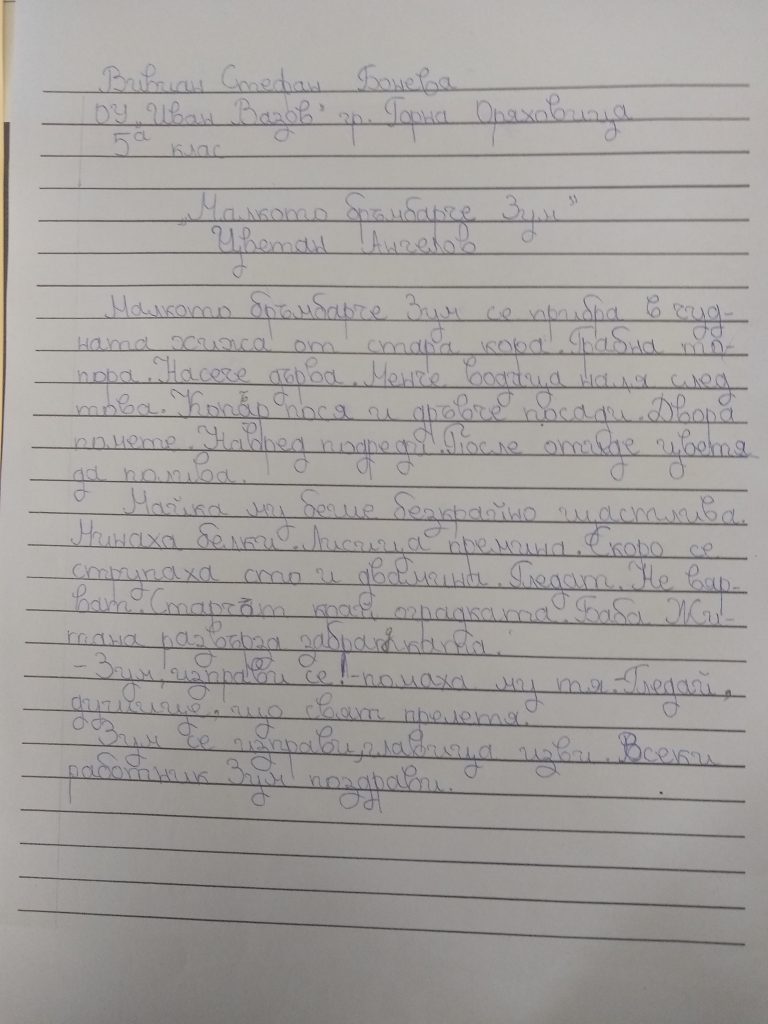 Вивиан Стефан Бонева
ОУ „Иван Вазов" гр. Горна Оряховица
5а клас
„Малкото бръмбарче Зум"
Цветан Ангелов
Малкото бръмбарче Зум се прибра в чуд-
ната хижа от стара кора. Грабна то-
пора. Насече дърва. Менче водица наля след
това. Копър пося и дръвче посади. Двора
помете. Навред подреди. После отиде цветя
да полива.
Майка му беше безкрайно щастлива.
Минаха белки. Лисица премина. Скоро се
струпаха сто и двамина. Гледат. Не вяр-
ват. Стърчат край оградката. Баба Жи-
тана развърза забрадката.
- Зум, изправи се! - помаха му тя. - Гледай,
душице, що свят прелетя.
Зум се изправи, главица изви. Всеки
работник Зум поздрави.